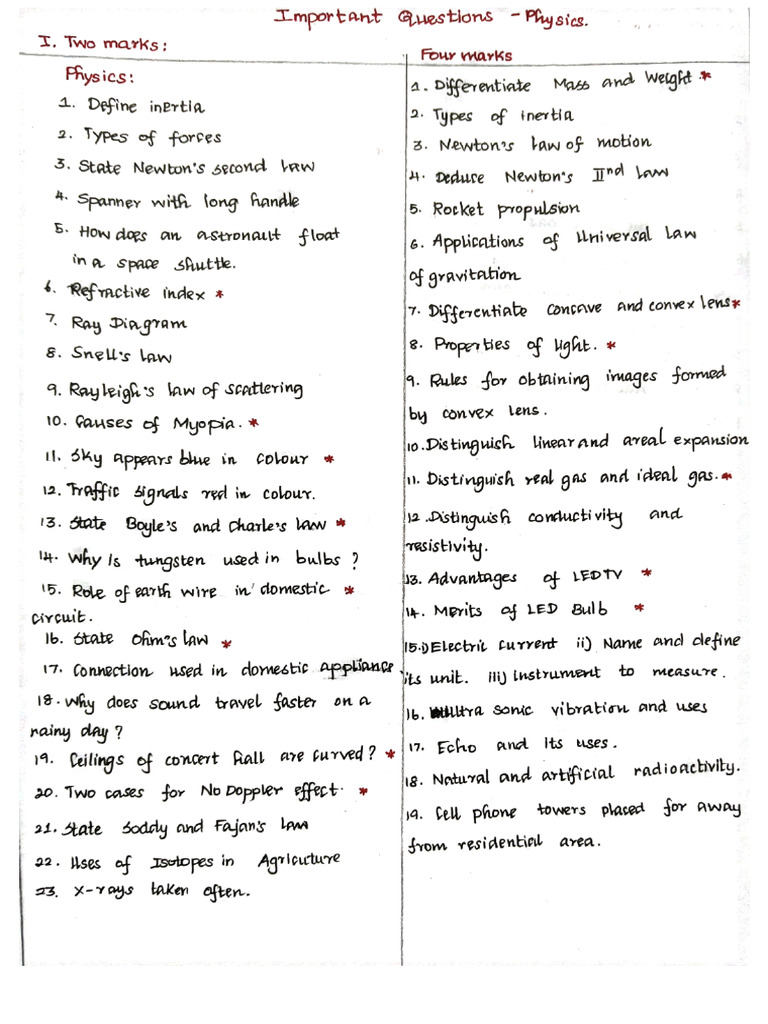 Important Questions - Physics.
I. Two marks:
Physics:
1. Define inertia
2. Types of forces
3. State Newton's second law
4. Spanner with long handle
5. How does an astronault float
in a space shuttle.
6. Refractive index *
7. Ray Diagram
8. Snell's law
9. Rayleigh's law of scattering
10. Causes of Myopia. *
11. Sky appears blue in colour *
12. Traffic signals red in colour.
13. State Boyle's and Charle's law *
14. Why is tungsten used in bulbs ?
15. Role of earth wire in domestic *
circuit.
16. State Ohm's law *
17. Connection used in domestic appliance
18. Why does sound travel faster on a
rainy day ?
19. Ceilings of concert hall are curved ? *
20. Two cases for No Doppler effect. *
21. State Soddy and Fajan's law
22. Uses of Isotopes in Agricuture
23. X-rays taken often.
Four marks
1. Differentiate Mass and Weight *
2. Types of inertia
3. Newton's law of motion
4. Deduce Newton's IInd law
5. Rocket propulsion
6. Applications of Universal law
of gravitation
7. Differentiate concave and convex lens *
8. Properties of light. *
9. Rules for obtaining images formed
by convex lens.
10. Distinguish linear and areal expansion
11. Distinguish real gas and ideal gas. *
12. Distinguish conductivity and
resistivity.
13. Advantages of LED TV *
14. Merits of LED Bulb *
15. i) Electric current ii) Name and define
its unit. iii) instrument to measure.
16. Ultra sonic vibration and uses
17. Echo and its uses.
18. Natural and artificial radioactivity.
19. Cell phone towers placed for away
from residential area.